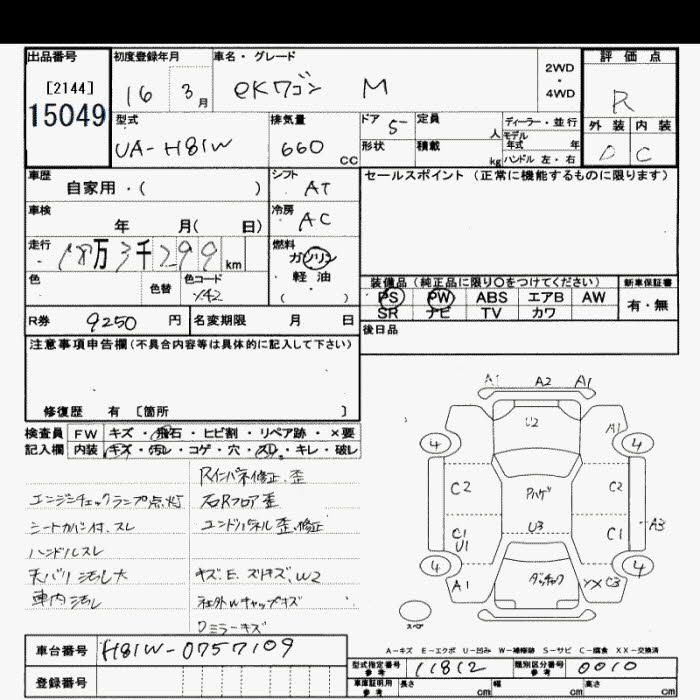 出品番号
[2144]
15049
初度登録年月
16 3月
車名・グレード
eKワゴン M
2WD
・
4WD
評価点
R
外装 内装
D C
型式
UA-H81W
排気量
660 CC
ドア 5
定員 人
形状
積載 kg
ディーラー・並行
モデル年式 年
ハンドル 左・右
車歴
自家用・( )
シフト
AT
セールスポイント (正常に機能するものに限ります)
車検
年 月( 日)
冷房
AC
走行
18万3千299 km
燃料
ガソリン
軽・油
( )
色
色替
色コード
X42
装備品 (純正品に限り○をつけてください)
PS PW ABS エアB AW
SR ナビ TV カワ
新車保証書
有・無
R券 9250 円
名変期限 月 日
後日品
注意事項申告欄 (不具合内容等は具体的に記入して下さい)
修復歴 有 〔箇所 〕
検査員 FW キズ・飛石・ヒビ割・リペア跡・×要
記入欄 内装 キズ・汚レ・コゲ・穴・スレ・キレ・破レ
Rインパネ修正、歪
エンジンチェックランプ点灯
右Rフロア歪
シートカバー付、スレ
エンドパネル歪、修正
ハンドルスレ
天バリ汚レ大
キズ、E、ズリキズ、W2
車内汚レ
社外Wキャップキズ
Dミラーキズ
A1 A2 A1
U2
A1
4 4
C2 ハゲ C2
U3
C1 U1 C1 A3
4 4
A1 YX C3
スペア
A-キズ E-エクボ U-凹み W-補修跡 S-サビ C-腐食 XX-交換済
車台番号 H81W-0757109
登録番号
型式指定番号 参考 11812
類別区分番号 参考 0010
車庫証明用 参考 長さ cm 幅 cm 高さ cm